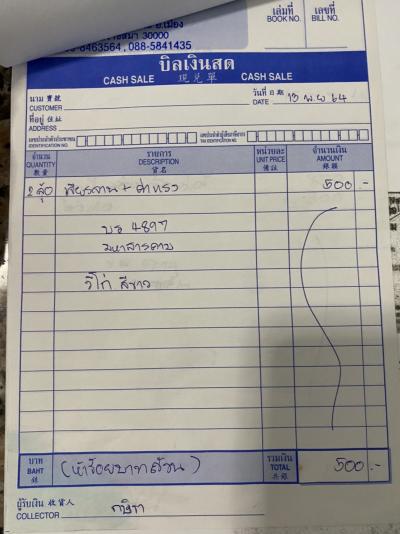 อ.เมือง
30000
8463564, 088-5841435
เล่มที่ เลขที่
BOOK NO. BILL NO.
บิลเงินสด
CASH SALE 現兑單 CASH SALE
นาม 寶號
CUSTOMER
วันที่ 日期
DATE 19 พ.ย 64
ที่อยู่ 住址
ADDRESS
เลขประจำตัวประชาชน
IDENTIFICATION NO.
เลขประจำตัวผู้เสียภาษีอากร
TAX IDENTIFICATION NO.
จำนวน รายการ หน่วยละ จำนวนเงิน
QUANTITY DESCRIPTION UNIT PRICE AMOUNT
數量 貨名 備註 銀額
2 ค่าแรง 500.-
บง 4897
มหาสารคาม
วีโก่ สีขาว
บาท
BAHT
銖
(ห้าร้อยบาทถ้วน)
รวมเงิน
TOTAL
共銀
500.-
ผู้รับเงิน 收貨人
COLLECTOR